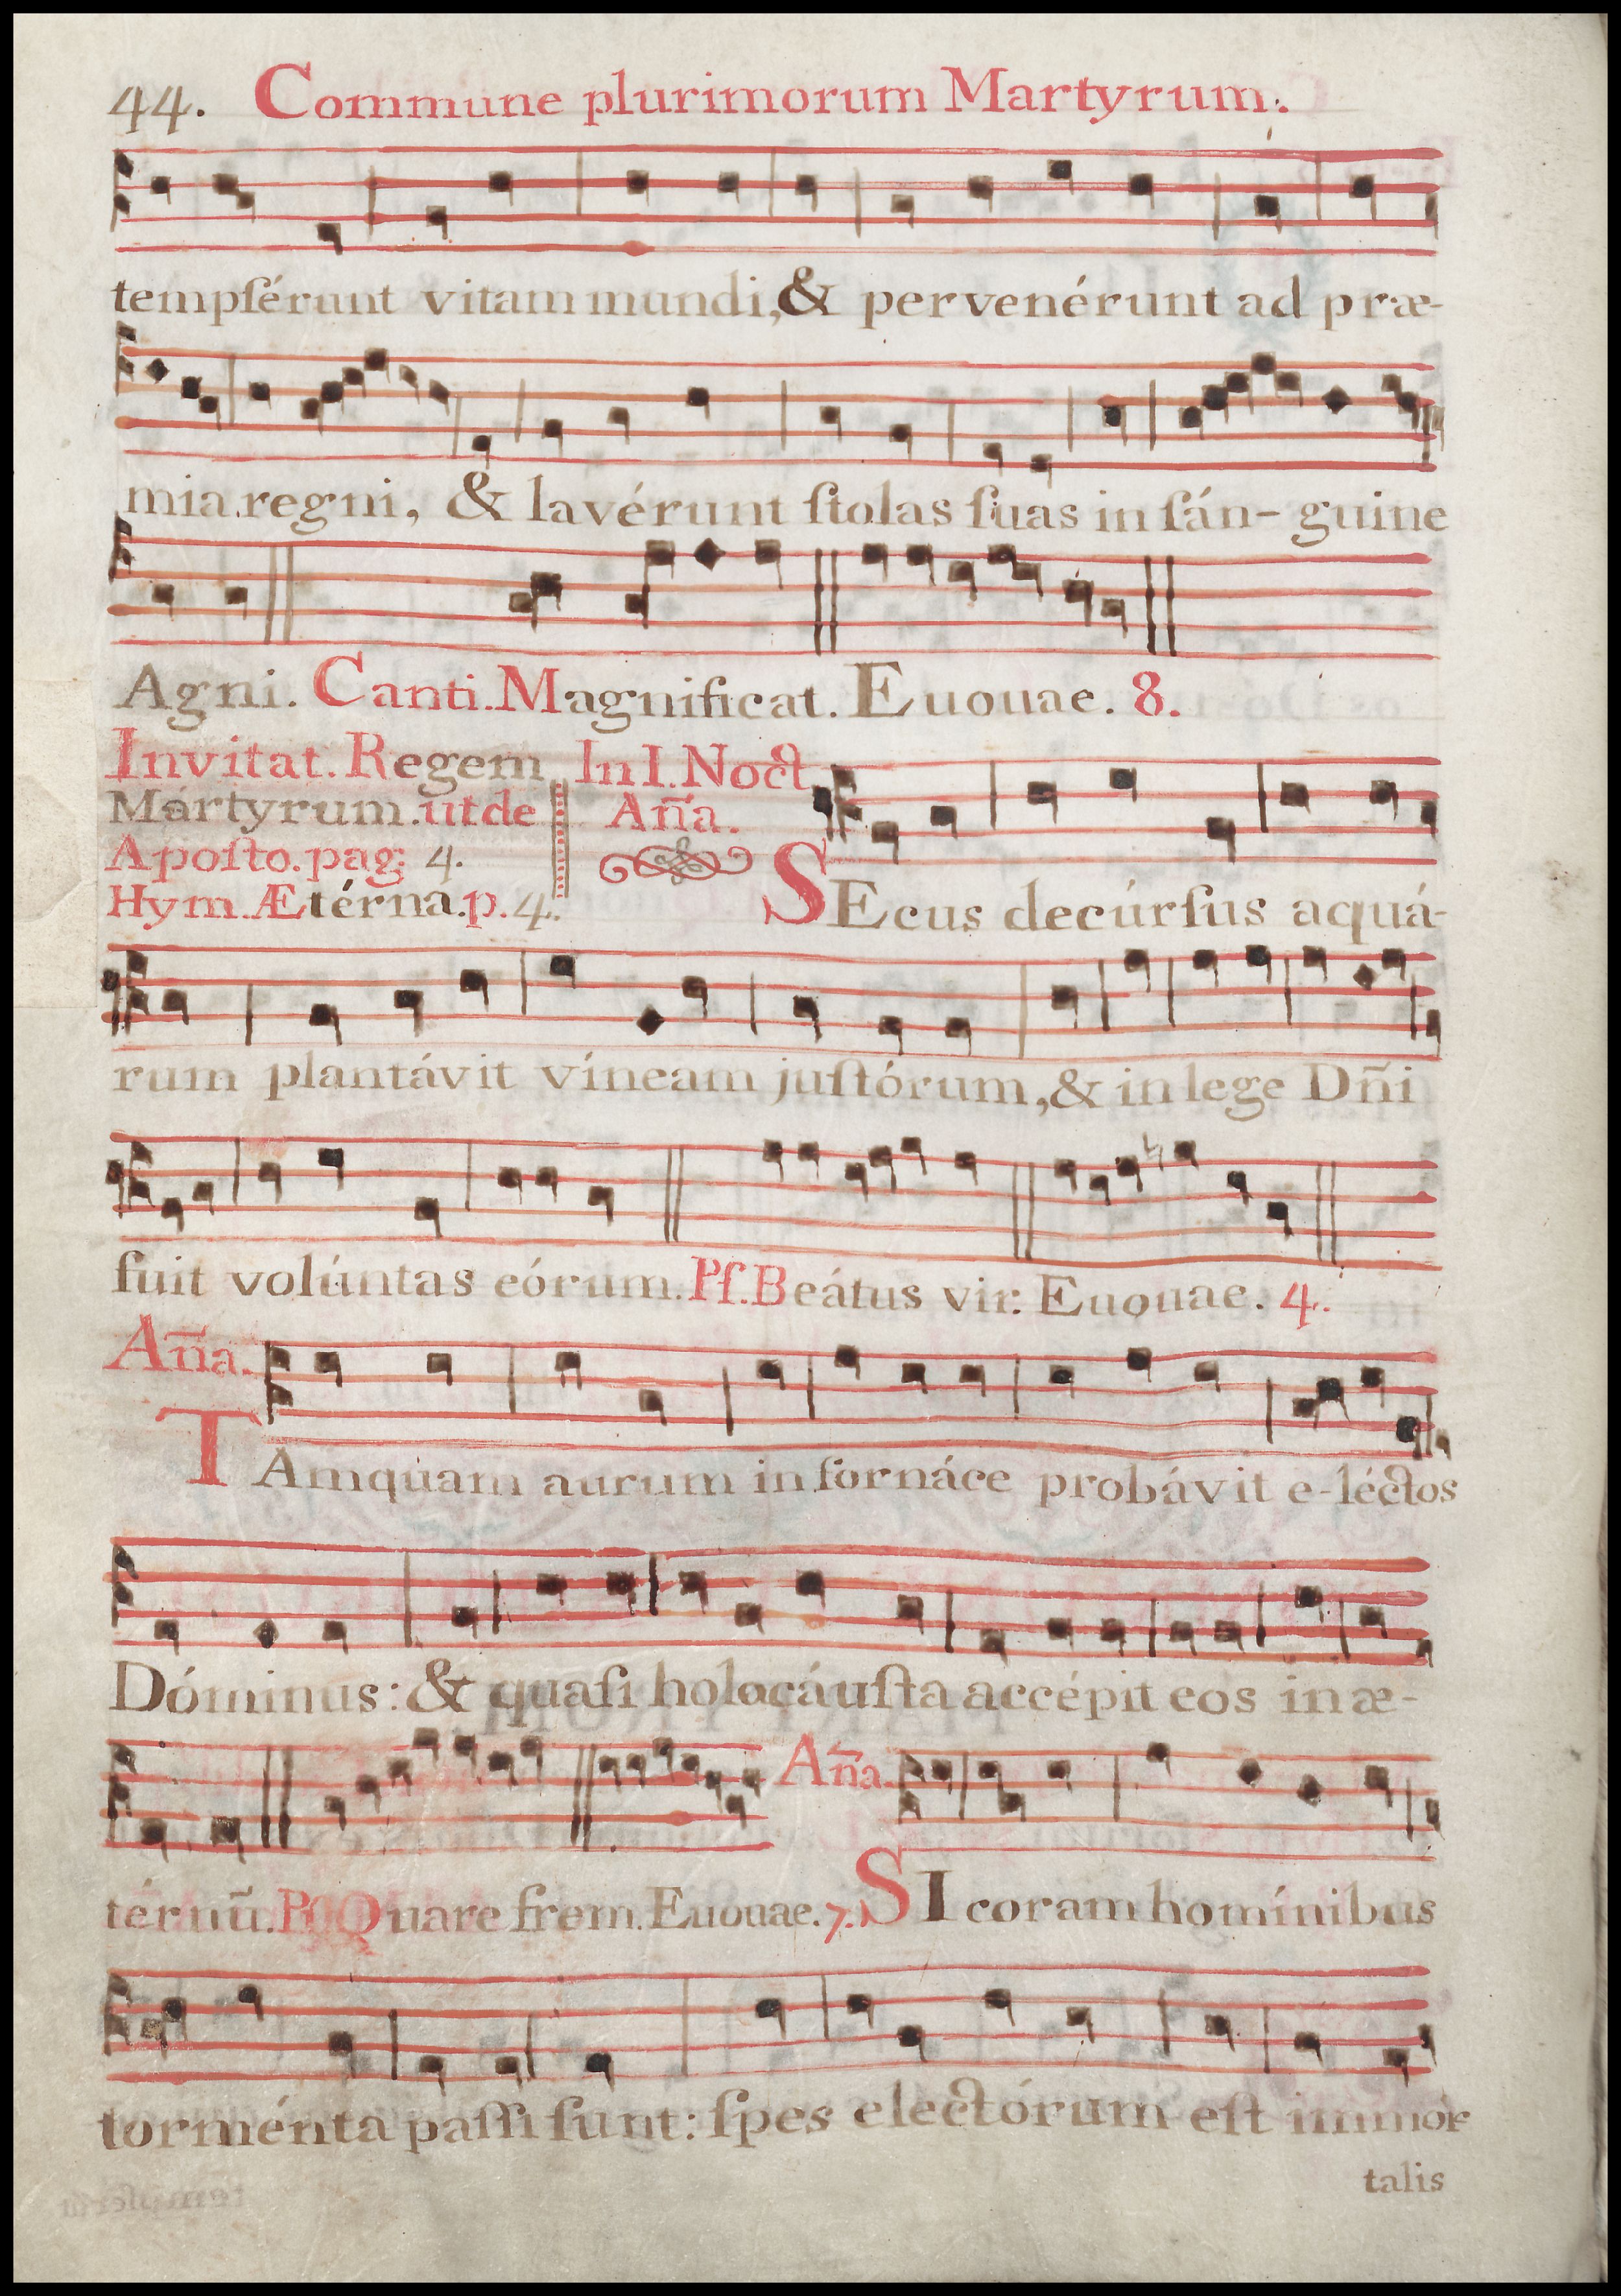 44. Commune plurimorum Martyrum.
tempſérunt vitam mundi, & pervenérunt ad præ-
mia regni, & lavérunt ſtolas ſuas in ſán- guine
Agni. Canti. Magnificat. Euouae. 8.
Invitat. Regem
Mártyrum. ut de
Apoſto. pag: 4.
Hym. Ætérna. p. 4.
In I. Noct.
Aña.
SEcus decúrſus aquá-
rum plantávit víneam juſtórum, & in lege Dñi
fuit volúntas eórum. Pſ. Beátus vir. Euouae. 4.
Aña.
TAmquam aurum in fornáce probávit e-léctos
Dóminus: & quaſi holocáuſta accépit eos in æ-
Aña.
térnũ. Pſ. Quare frem. Euouae. 7. SI coram homínibus
torménta paſſi ſunt: ſpes electórum eſt immor
talis